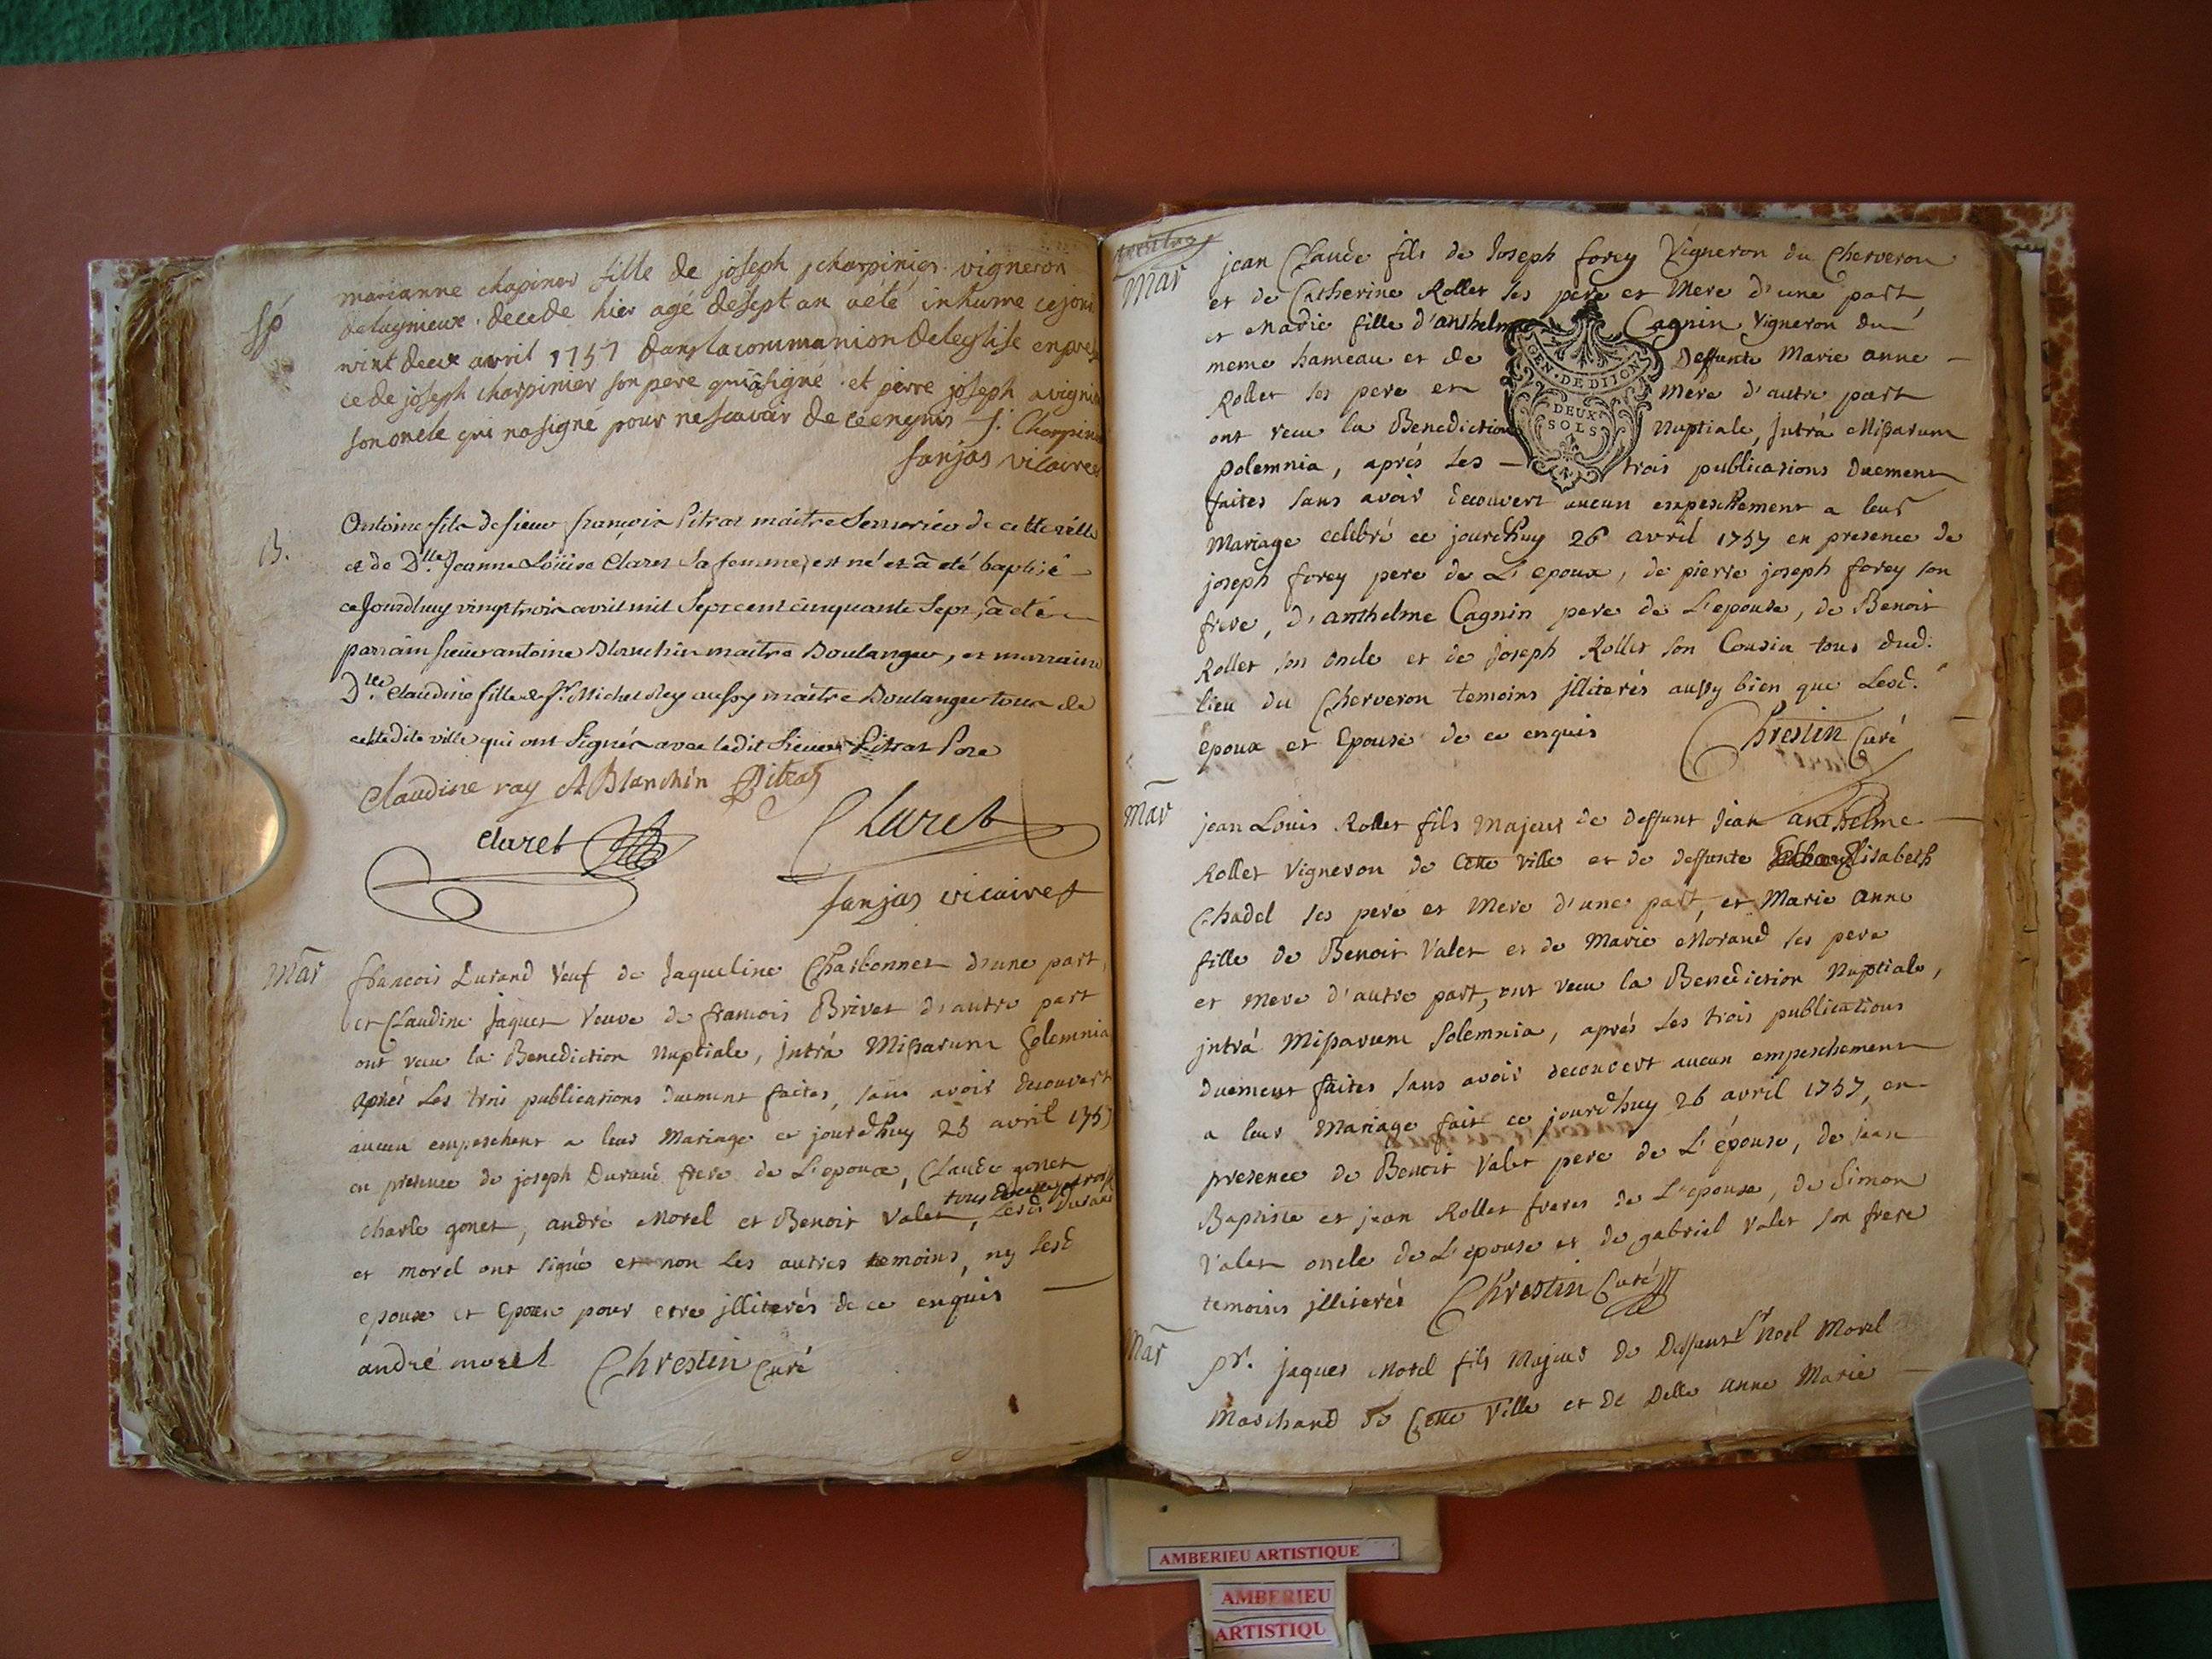 Sp
marianne chapinor fille de joseph charpinier vigneron
de lagnieux decede hier agé desept an aété inhume cejour
vint deux avril 1757 dans la communion deleglise enpres
ce de joseph charpinier son pere quiasigné et pierre joseph avignin
son oncle qui nasigné pour nescavoir de ceenquis J. Charpin
sanjas vicaire
B.
Antoine fils de sieur françois Pitrat maitre Serrurier de cette ville
et de Dlle Jeanne Loüise Claret sa femme, est né et a eté baptisé
cejourdhuy vingt trois avril mil sept cent cinquante sept, a eté
parrain sieur antoine Blanchin maitre Boulanger, et marraine
Dlle Claudine fille de Sr Michel Rey aussy maître Boulanger tous de
cettedite ville qui ont Signés avec ledit Sieur Pitrat Pere
Claudine ray A Blanchin Pitrat
Claret Claret
sanjas vicaire
Mar
francois Durand Veuf de Jaqueline Charbonnet d'une part,
et Claudine Jaquet Veuve de francois Brivet d'autre part
ont recu la Benediction Nuptiale, jntrá Missarum Solemnia
aprés Les trois publications duement faites, sans avoir decouvert
aucun empeschent a leur Mariage ce jourdhuy 25 avril 1757
en presence de joseph Durand frere de L'epoux, Claude gonet
tous de cette
charle gonet, andré Morel et Benoit Valet, Lesd Durand
et morel ont signé et non les autres temoins, ny lesd
epoux et Epouse pour etre jlliterés de ce enquis
andré morel Chrestin Curé
Mar
jean Claude fils de Joseph forey Vigneron du Cherveron
et de Catherine Rollet ses pere et Mere d'une part,
et Marie fille d'anthelme Cagnin Vigneron du
meme hameau et de Deffunte Marie anne
Rollet ses pere et Mere d'autre part
ont recu la Benediction Nuptiale, Jntrá Missarum
Solemnia, aprés Les trois publications Duement
GEN. DE DIJON
DEUX
SOLS
faites sans avoir decouvert aucun empeschement a leur
Mariage celebré ce jourdhuy 26 avril 1757 en presence de
joseph forey pere de L'epoux, de pierre joseph forey son
frere, d'anthelme Cagnin pere de L'epouse, de Benoit
Rollet son Oncle et de Joseph Rollet son Cousin tous dud.
lieu du Cherveron temoins jlliterés aussy bien que Lesd.
epoux et Epouse de ce enquis Chrestin Curé
Mar
jean Louis Rollet fils Majeur de deffunt Jean anthelme
Rollet Vigneron de Cette Ville et de deffunte Elisabeth
Chadel ses pere et Mere d'une part, et Marie anne
fille de Benoit Valet et de Marie Morand ses pere
et mere d'autre part, ont recu la Benediction Nuptiale,
jntrá Missarum Solemnia, aprés Les trois publications
duement faites sans avoir decouvert aucun empeschement
a leur Mariage fait ce jourdhuy 26 avril 1757, en
presence de Benoit Valet pere de L'épouse, de jean
Baptiste et jean Rollet freres de L'epoux, de Simon
Valet oncle de L'epouse et de gabriel Valet son frere
temoins jlliterés Chrestin Curé
Mar
Sr. jaques Morel fils Majeur de Deffunt Sr Noel Morel
Marchand de Cette Ville et de Delle Anne Marie
AMBERIEU ARTISTIQUE
AMBERIEU
ARTISTIQU